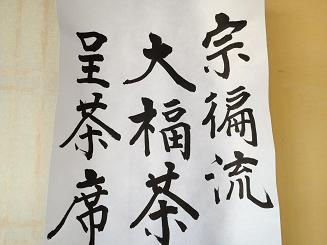 宗徧流
大福茶
呈茶席